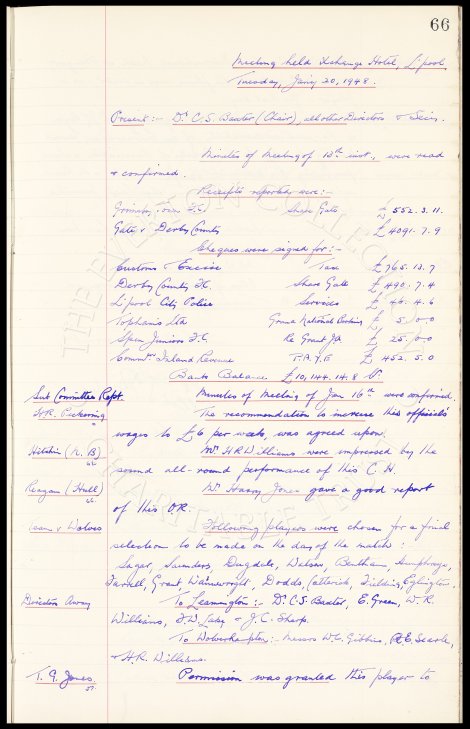 66
Meeting held Xchange Hotel, L'pool,
Tuesday, Jan'y 20, 1948.
Present:- Dr. C. S. Baxter (Chair), all other Directors & Secy.
Minutes of Meeting of 13th inst., were read
& confirmed.
Receipts reported were:-
Grimsby Town F.C. Share Gate £ 552. 3. 11.
Gate v Derby County £ 4091. 7. 9
Cheques were signed for:-
Customs & Excise Tax £ 765. 13. 7
Derby County F.C. Share Gate £ 490. 7. 4
L'pool City Police Services £ 46. 4. 6
Tophams Ltd Grand National Parking £ 5/0/0
Speke Juniors F.C. Re Grant JA £ 25/0/0
Commrs. Inland Revenue P.A.Y.E £ 452. 5. 0
Bank Balance £10,144. 14. 8
Sub Committee Rept. Minutes of Meeting of Jan 16th were confirmed.
H.R. Pickering The recommendation to increase this official's
wages to £6 per week, was agreed upon.
Hitchin (N. B) Mr H R Williams were impressed by the
sound all-round performance of this C. H.
Reagan (Hull) Mr. Harry Jones gave a good report
of this O.R.
Team v Wolves Following players were chosen for a final
selection to be made on the day of the match:
Sagar, Saunders, Dugdale, Watson, Bentham, Humphreys,
Farrell, Grant, Wainwright, Dodds, Catterick, Fielding, Eglington.
Directors Away To Leamington:- Dr. C. S. Baxter, E. Green, W. R.
Williams, F. W. Lake & J. C. Sharp.
To Wolverhampton:- Messrs W. C. Gibbins, R. E. Searle,
& H. R. Williams.
T. G. Jones Permission was granted this player to
THE EVERTON COLLECTION
CHARITABLE TRUST